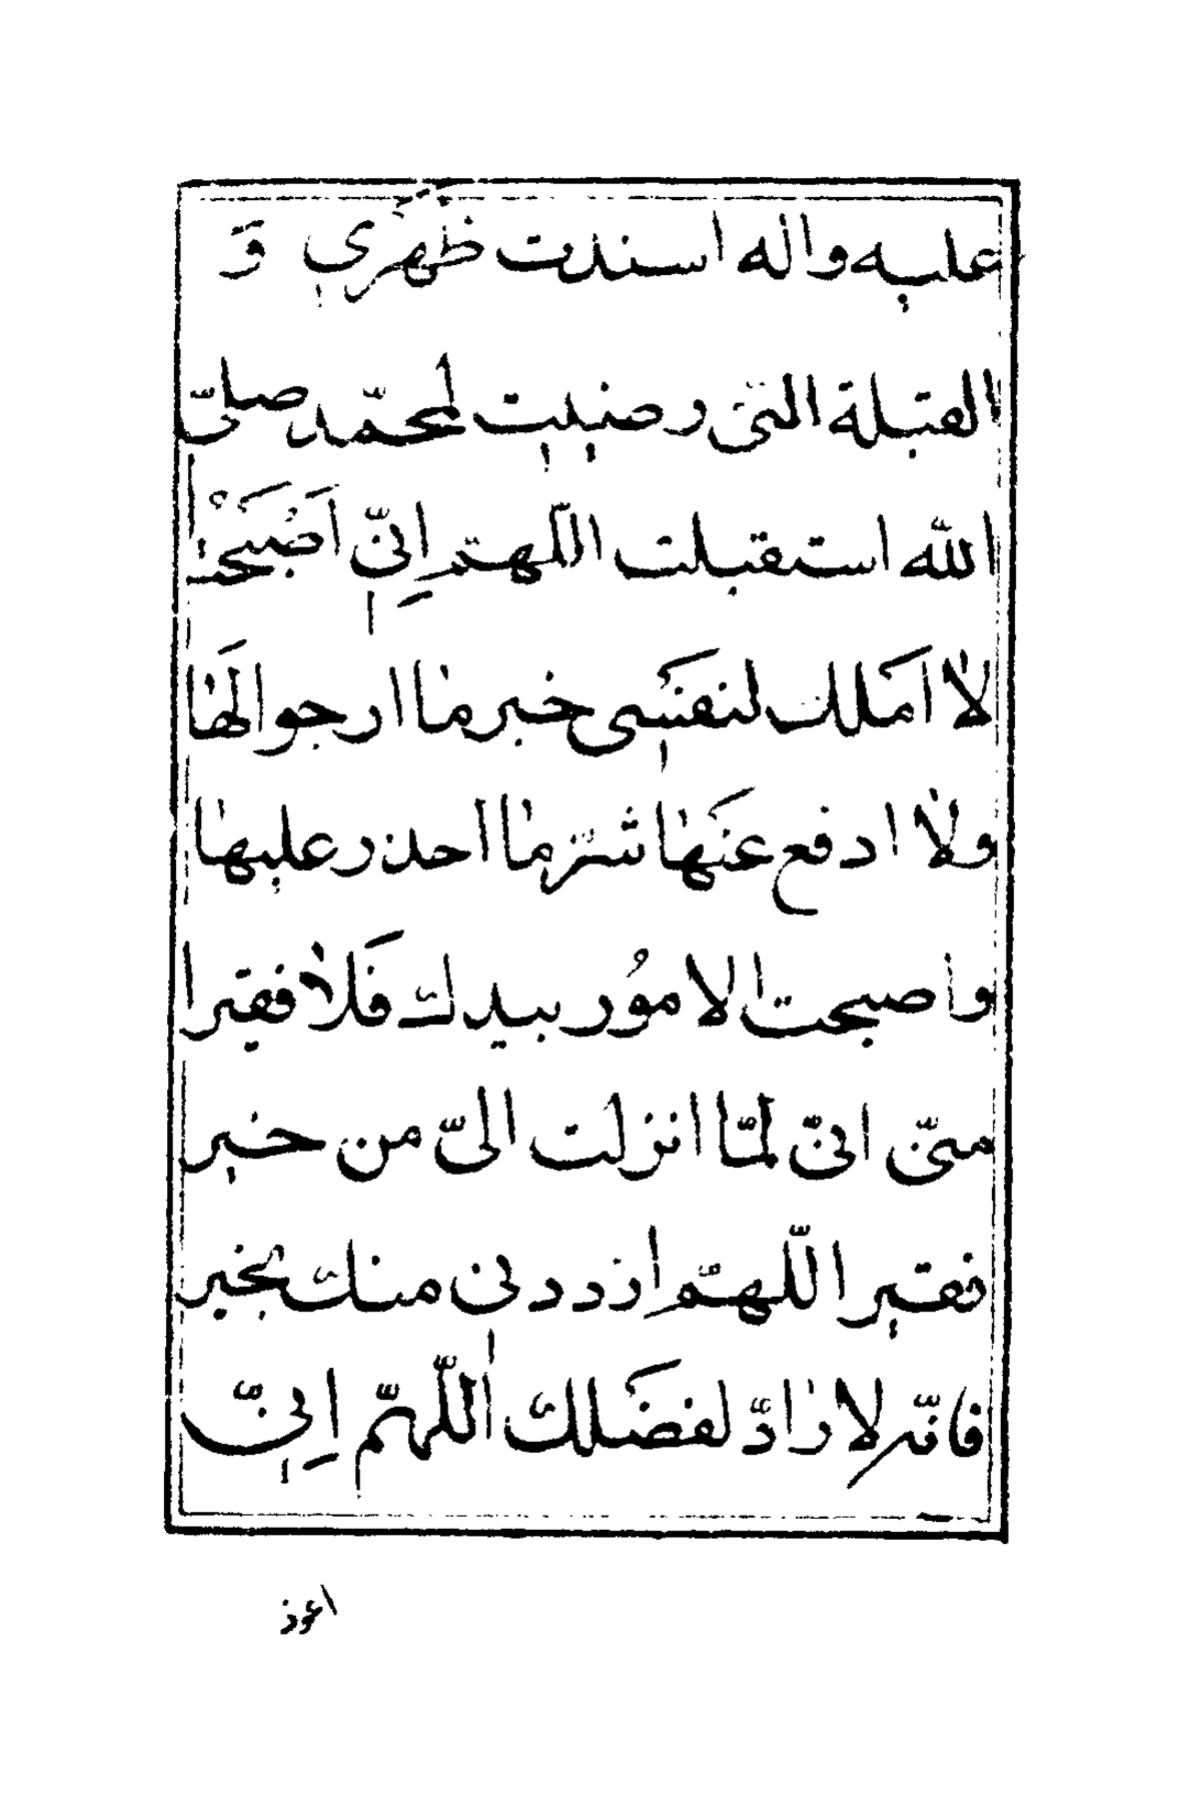 عليه واله اسندت ظَهْرَي وَ
القبلة التي رضيت لمحمّد صلّى
اللّه استقبلت اللّهمّ اِنّي اَصْبَحْتُ
لا اَملك لنفسَي خير ما ارجوا لَها
ولا ادفع عنَها شرّ ما احذر عليها
واصبحت الامُور بيدك فَلا فقيرا
منّي انّي لمّا انزلت اليّ من خير
فقير اللّهمّ ازددني منك بخير
فانّه لا رادّ لفضَلك اللّهمّ اِنّي
اعوذ